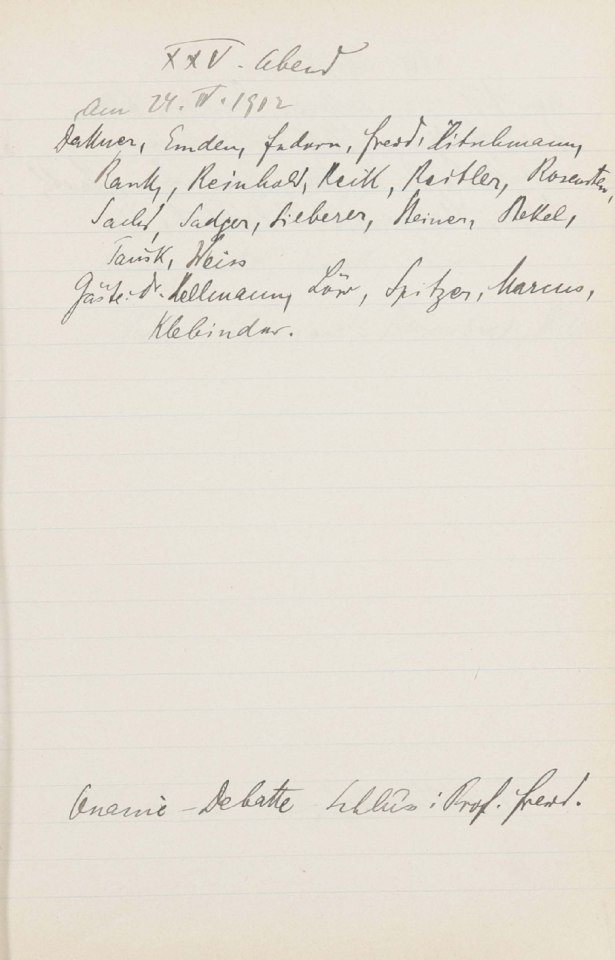 XXV. Abend
am 24. IV. 1912
Dattner, Emden, Federn, Freud, Hitschmann,
Rank, Reinhold, Reik, Reitler, Rosenstein,
Sachs, Sadger, Silberer, Steiner, Stekel,
Tausk, Weiss
Gäste: Dr. Kellmann, Löw, Spitzer, Marcus,
Klebinder.
Onanie-Debatte Schluss: Prof. Freud.